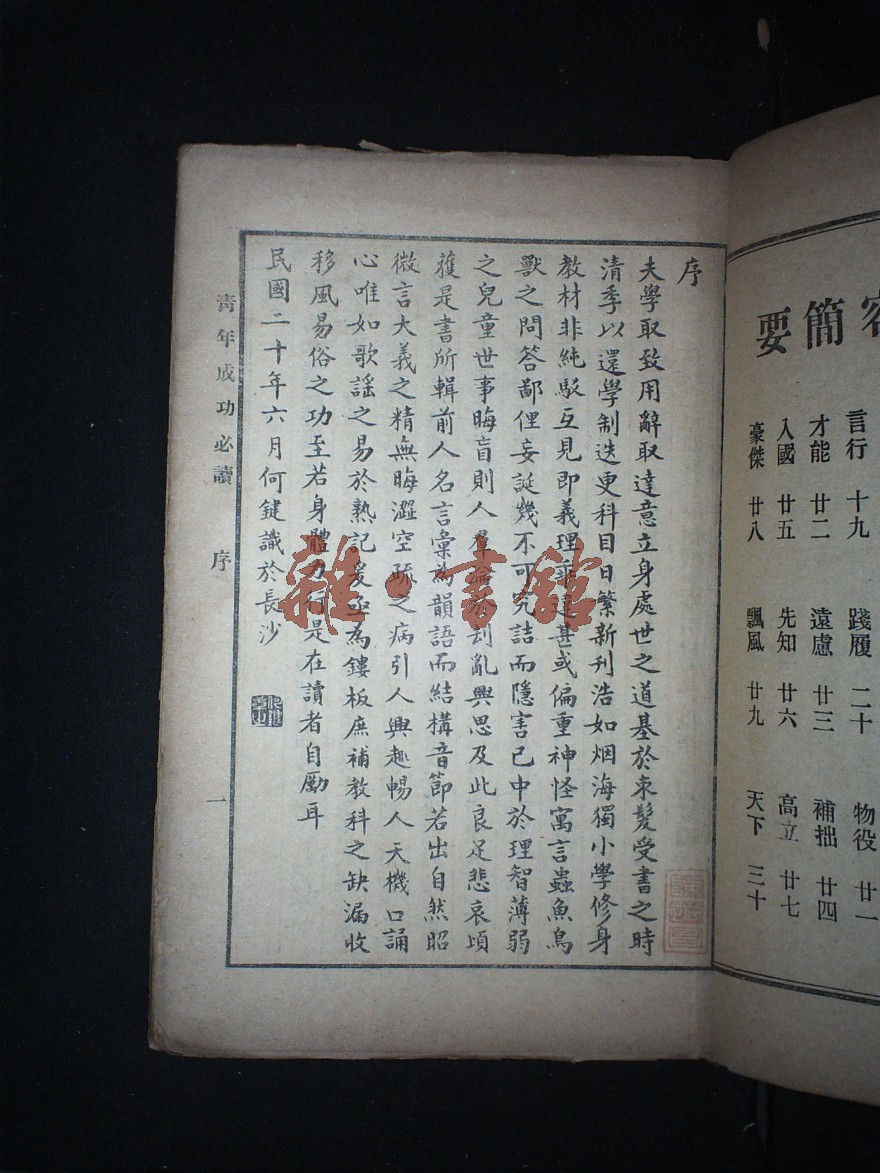 序
夫學取致用辭取達意立身處世之道基於束髮受書之時
清季以還學制迭更科目日繁新刊浩如烟海獨小學修身
教材非純駁互見即義理乖違甚或偏重神怪寓言蟲魚鳥
獸之問答鄙俚妄誕幾不可究詰而隱害已中於理智薄弱
之兒童世事晦盲則人羣淪於刦亂興思及此良足悲哀頃
蒦是書所輯前人名言彙為韻語而結構音節若出自然昭
微言大義之精無晦澀空疏之病引人興趣暢人天機口誦
心唯如歌謡之易於熟記爰亟為鏤板庶補教科之缺漏收
移風易俗之功至若身體力行是在讀者自勵耳
民國二十年六月何鍵識於長沙
青年成功必讀 序 一
雜·書館
容簡要
言行 十九 踐履 二十 物役 廿一
才能 廿二 遠慮 廿三 補拙 廿四
入國 廿五 先知 廿六 高立 廿七
豪傑 廿八 飄風 廿九 天下 三十